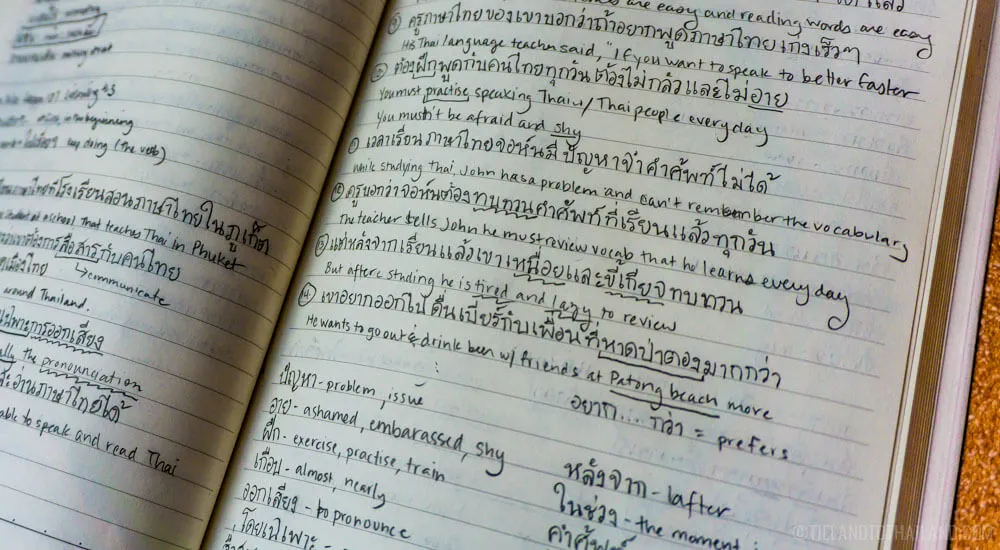 in the beginning
say doing (the verb)
ภาษาไทยที่โรงเรียนสอนภาษาไทยในภูเก็ต
student at a school that teaches Thai in Phuket
ต้องการสื่อสารกับคนไทย
communicate
เมืองไทย
around Thailand.
การออกเสียง
the pronounciation
อ่านภาษาไทยได้
able to speak and read Thai
are easy and reading words are easy
ครูภาษาไทยของเขาบอกว่าถ้าอยากพูดภาษาไทยเก่งเร็วๆ
His Thai language teacher said, "If you want to speak to better faster
ต้องฝึกพูดกับคนไทยทุกวัน ต้องไม่กลัวและไม่อาย
You must practise speaking Thai w/ Thai people everyday
You mustn't be afraid and shy
เวลาเรียนภาษาไทยจอห์นมีปัญหาจำคำศัพท์ไม่ได้
While studying Thai, John has a problem and can't remember the vocabulary
ครูบอกว่าจอห์นต้องทบทวนคำศัพท์ที่เรียนแล้วทุกวัน
The teacher tells John he must review vocab that he learns every day
แต่หลังจากเรียนแล้วเขาเหนื่อยและขี้เกียจทบทวน
But afters studing he is tired and lazy to review
เขาอยากออกไปดื่มเบียร์กับเพื่อนที่หาดป่าตองมากกว่า
He wants to go out & drink beer w/ friends at Patong beach more
อยาก... กว่า = prefers
ปัญหา - problem, issue
อาย - ashamed, embarassed, shy
ฝึก - exercise, practise, train
เกือบ - almost, nearly
ออกเสียง - to pronounce
โดยเฉพาะ -
หลังจาก - after
ในช่วง - the moment
คำศัพท์
©TIELANDTOTHAILAND.COM